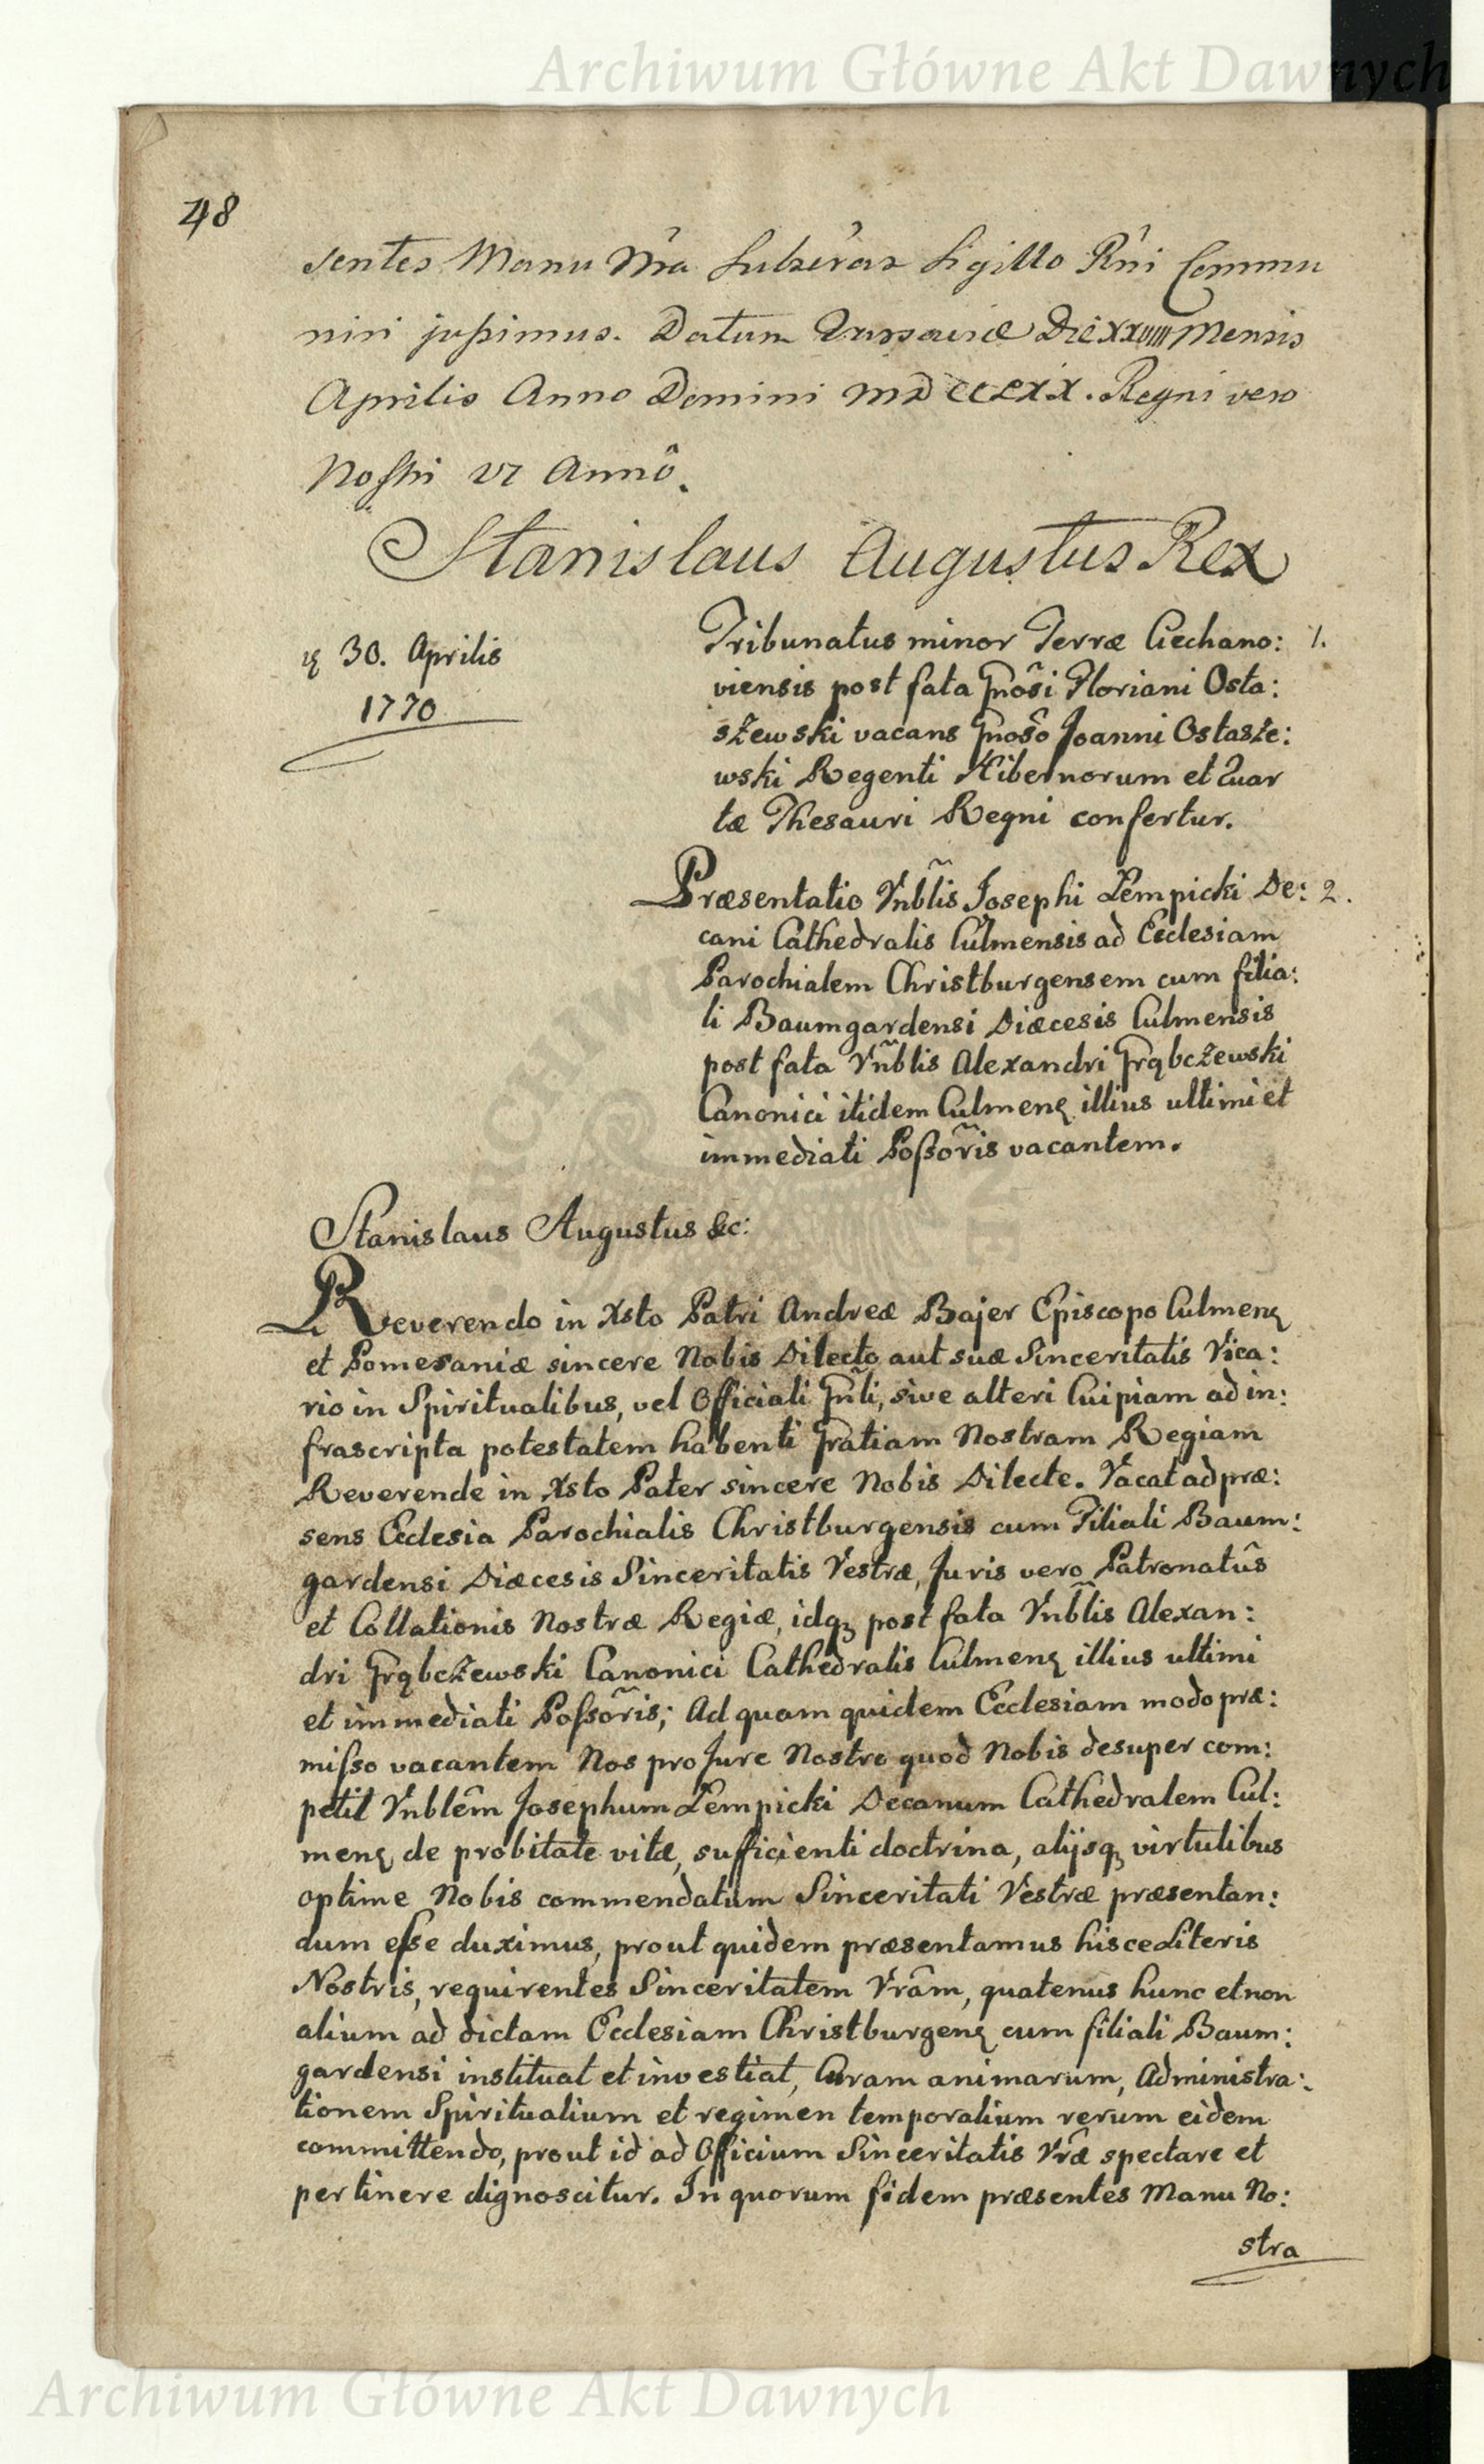 Archiwum Główne Akt Dawnych
48
sentes Manu Nrã Subscr̃ras Sigillo Rñi Commu
niri jussimus. Datum Varsaviæ Die XXVIIII Mensis
Aprilis Anno Domini MDCCLXX. Regni vero
Nostri VI Annô.
Stanislaus Augustus Rex
30. Aprilis
1770
Tribunatus minor Terræ Ciechano: 1.
viensis post fata Gnõsi Floriani Osta:
szewski vacans Gnosõ Joanni Ostasze:
wski Regenti Hibernorum et Quar
tæ Thesauri Regni confertur.
Præsentatio Vnb̃lis Josephi Łempicki De: 2.
cani Cathedralis Culmensis ad Ecclesiam
Parochialem Christburgensem cum filia:
li Baumgardensi Diæcesis Culmensis
post fata Vñblis Alexandri Grąbczewski
Canonici itidem Culmenę illius ultimi et
immediati Possõris vacantem.
Stanislaus Augustus &c:
Reverendo in Xsto Patri Andreæ Bajer Episcopo Culmenę
et Pomesaniæ sincere Nobis Dilecto aut suæ Sinceritatis Vica:
rio in Spiritualibus, vel Officiali Gñli, sive alteri Cuipiam ad in:
frascripta potestatem habenti Gratiam Nostram Regiam
Reverende in Xsto Pater sincere Nobis Dilecte. Vacat ad præ:
sens Ecclesia Parochialis Christburgensis cum Filiali Baum:
gardensi Diæcesis Sinceritatis Vestræ, Juris vero Patronatûs
et Collationis Nostræ Regiæ, idqꝫ post fata Vnb̃lis Alexan:
dri Grąbczewski Canonici Cathedralis Culmenę illius ultimi
et immediati Possõris; Ad quam quidem Ecclesiam modo præ:
misso vacantem Nos pro Jure Nostro quod Nobis desuper com:
petit Vnblêm Josephum Łempicki Decanum Cathedralem Cul:
menę de probitate vitæ, sufficienti doctrina, alijsqꝫ virtutibus
optime Nobis commendatum Sinceritati Vestræ præsentan:
dum esse duximus, prout quidem præsentamus hisce Literis
Nostris, requirentes Sinceritatem Vrâm, quatenus hunc et non
alium ad dictam Ecclesiam Christburgenę cum filiali Baum:
gardensi instituat et investiat, Curam animarum, Administra:
tionem Spiritualium et regimen temporalium rerum eidem
committendo, prout id ad Officium Sinceritatis Vræ̂ spectare et
pertinere dignoscitur. In quorum fidem præsentes Manu No:
stra
Archiwum Główne Akt Dawnych